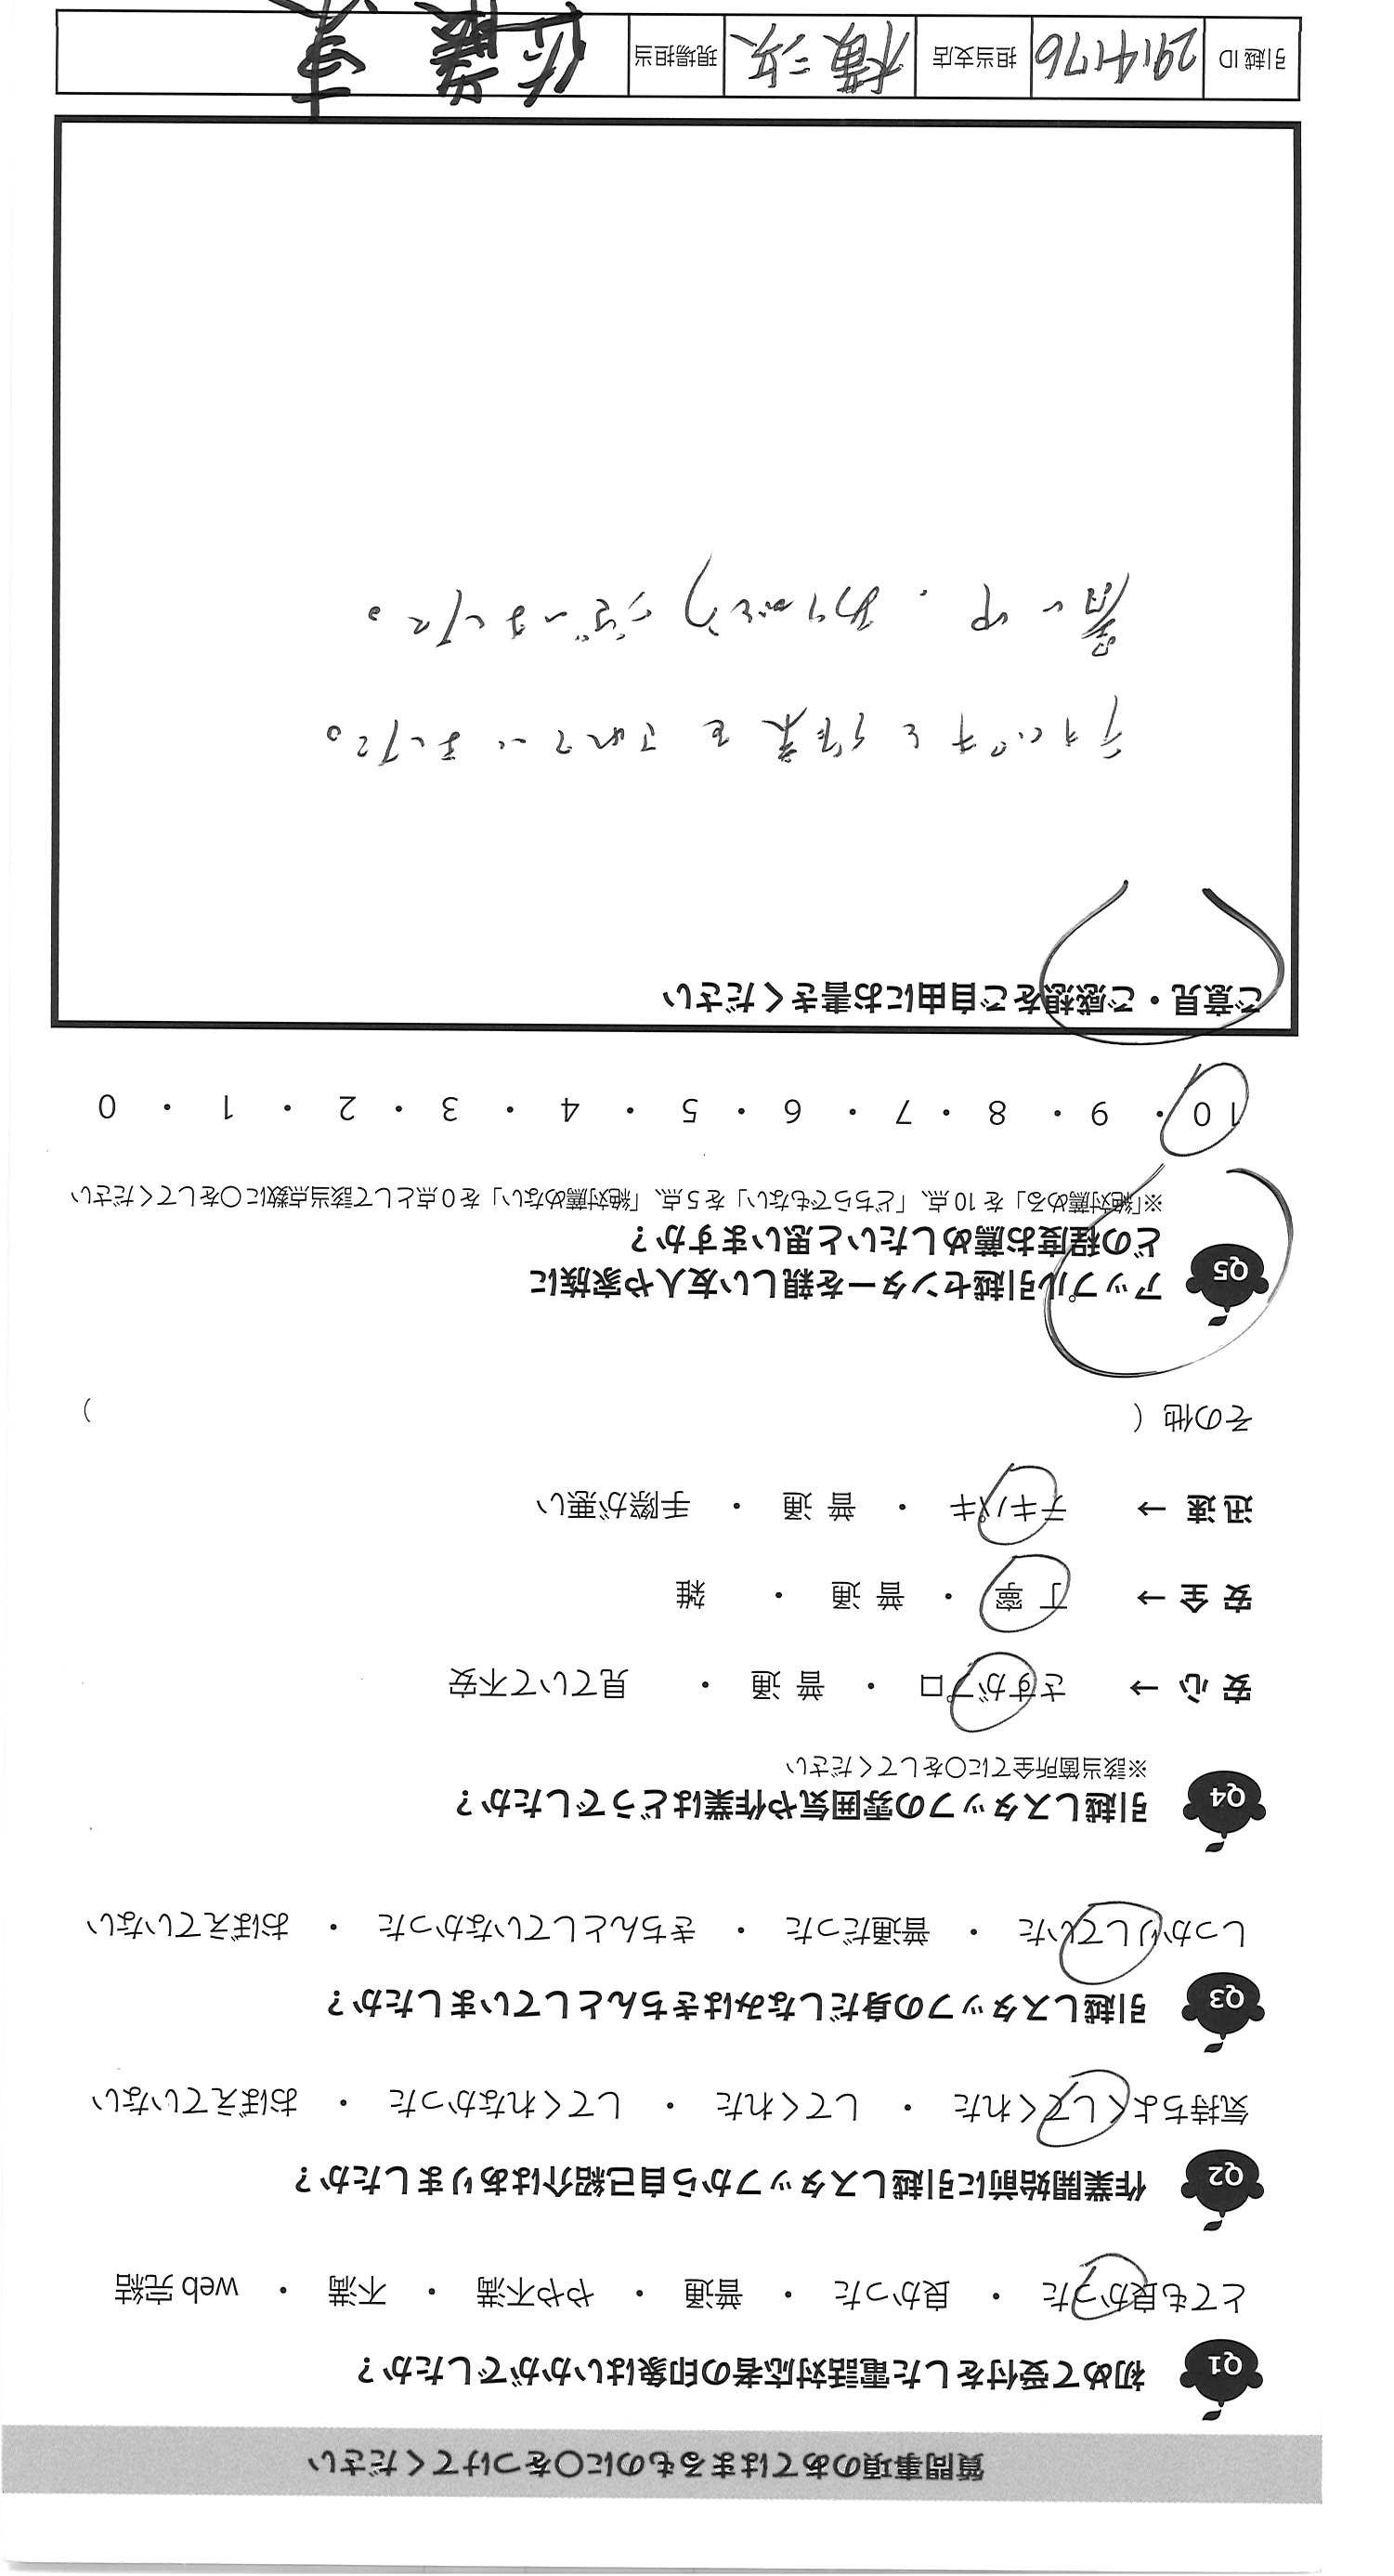 質問事項のあてはまるものに〇をつけてください
Q1 初めて受付をした電話対応者の印象はいかがでしたか？
とても良かった ・ 良かった ・ 普通 ・ やや不満 ・ 不満 ・ web 完結
Q2 作業開始前に引越しスタッフから自己紹介はありましたか？
気持ちよくしてくれた ・ してくれた ・ してくれなかった ・ おぼえていない
Q3 引越しスタッフの身だしなみはきちんとしていましたか？
しっかりしていた ・ 普通だった ・ きちんとしていなかった ・ おぼえていない
Q4 引越しスタッフの雰囲気や作業はどうでしたか？
※該当箇所全てに〇をしてください
安 心 → さすがプロ ・ 普 通 ・ 見ていて不安
安 全 → 丁 寧 ・ 普 通 ・ 雑
迅 速 → テキパキ ・ 普 通 ・ 手際が悪い
その他（ ）
Q5 アップル引越センターを親しい友人や家族に
どの程度お薦めしたいと思いますか？
※「絶対薦める」を 10 点、「どちらでもない」を 5 点、「絶対薦めない」を 0 点として該当点数に〇をしてください
10 ・ 9 ・ 8 ・ 7 ・ 6 ・ 5 ・ 4 ・ 3 ・ 2 ・ 1 ・ 0
ご意見・ご感想をご自由にお書きください
テキパキと作業をされていました。
暑い中、ありがとうございました。
引越 ID 2914176 担当支店 横浜 現場担当 佐藤